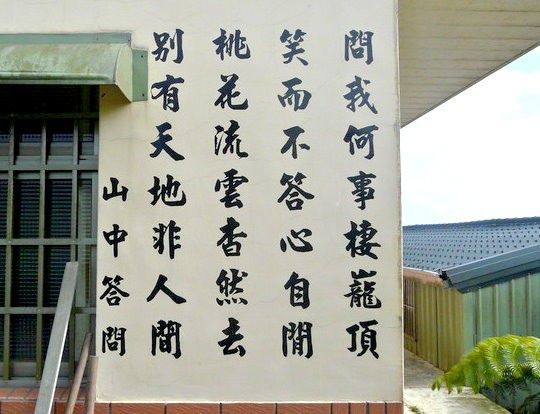 問我何事棲巃頂
笑而不答心自閒
桃花流雲杳然去
別有天地非人間
山中答問